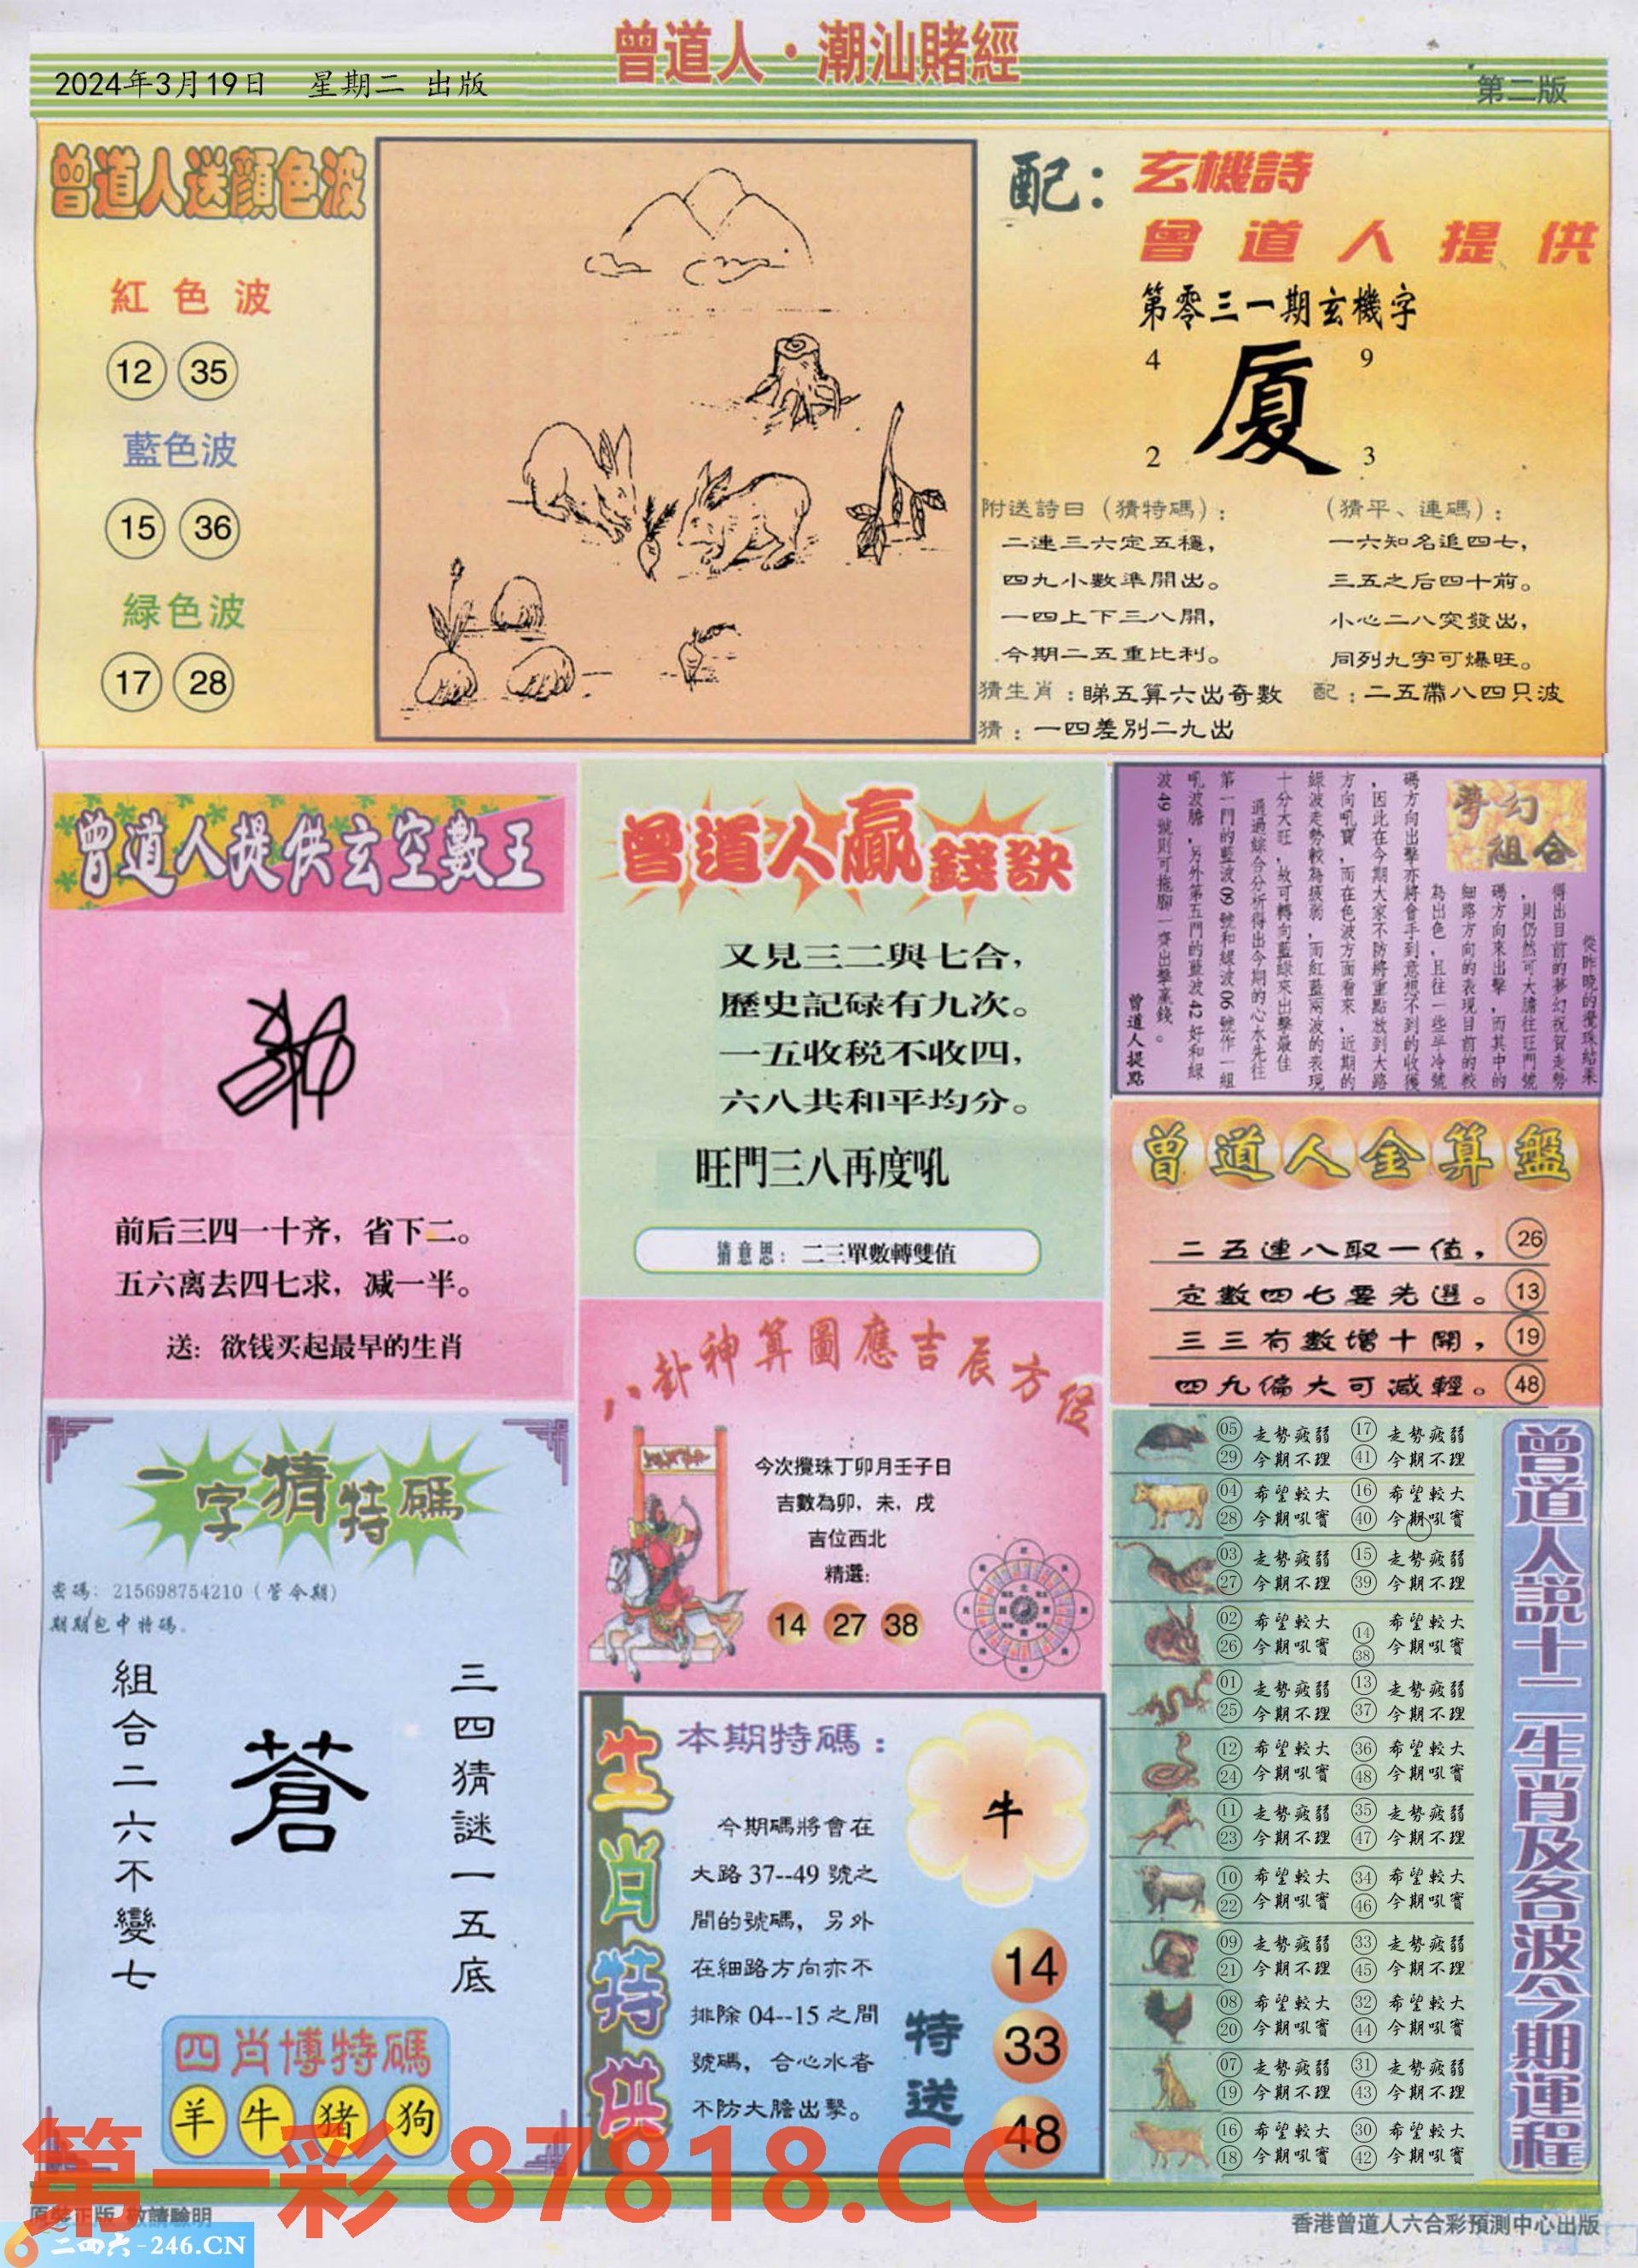 曾道人·潮汕賭經
2024年3月19日 星期二 出版
第二版
曾道人送顔色波
紅色波
12 35
藍色波
15 36
緑色波
17 28
配：玄機詩
曾道人提供
第零三一期玄機字
4 9
厦
2 3
附送詩日（猜特碼）：
二連三六定五穩，
四九小數準開出。
一四上下三八開，
今期二五重比利。
（猜平、連碼）：
一六知名追四七，
三五之后四十前。
小心二八突發出，
同列九字可爆旺。
猜生肖：睇五算六出奇數 配：二五帶八四只波
猜：一四差別二九出
曾道人提供玄空數王
前后三四一十齐，省下二。
五六离去四七求，减一半。
送：欲钱买起最早的生肖
曾道人贏錢訣
又見三二與七合，
歷史記碌有九次。
一五收税不收四，
六八共和平均分。
旺門三八再度吼
猜意思：二三單數轉雙值
夢幻
組合
從昨晚的攪珠結果
得出目前的夢幻祝賀走勢
，則仍然可大膽往旺門號
碼方向來出擊，而其中的
細路方向的表現目前的較
為出色，且往一些半冷號
碼方向出擊亦將會手到意想不到的收獲
，因此在今期大家不防將重點放到大路
方向吼寶，而在色波方面看來，近期的
緑波走勢較為疲弱，而紅藍兩波的表現
十分大旺，故可轉向藍緑來出擊最佳
通過綜合分析得出今期的心水先往
第一門的藍波09號和緑波06號作一組
吼波膽，另外第五門的藍波42好和緑
波49號則可拖脚一齊出擊贏錢。
曾道人提點
曾道人金算盤
二五連八取一值，26
定數四七要先選。13
三三有數增十開，19
四九偏大可減輕。48
八卦神算圖應吉辰方位
今次攪珠丁卯月壬子日
吉數為卯，未，戌
吉位西北
精選：
14 27 38
一字猜特碼
密碼：215698754210（管令期）
期期包中特碼。
三四猜謎一五底
蒼
組合二六不變七
四肖博特碼
羊 牛 猪 狗
生肖特供
本期特碼：
牛
今期碼將會在
大路37--49號之
間的號碼，另外
在細路方向亦不
排除04--15之間
號碼，合心水者
不防大膽出擊。
特送
14
33
48
曾道人說十二生肖及各波今期運程
05 走勢疲弱 17 走勢疲弱
29 今期不理 41 今期不理
04 希望較大 16 希望較大
28 今期吼寶 40 今期吼寶
03 走勢疲弱 15 走勢疲弱
27 今期不理 39 今期不理
02 希望較大 14 希望較大
26 今期吼寶 38 今期吼寶
01 走勢疲弱 13 走勢疲弱
25 今期不理 37 今期不理
12 希望較大 36 希望較大
24 今期吼寶 48 今期吼寶
11 走勢疲弱 35 走勢疲弱
23 今期不理 47 今期不理
10 希望較大 34 希望較大
22 今期吼寶 46 今期吼寶
09 走勢疲弱 33 走勢疲弱
21 今期不理 45 今期不理
08 希望較大 32 希望較大
20 今期吼寶 44 今期吼寶
07 走勢疲弱 31 走勢疲弱
19 今期不理 43 今期不理
16 希望較大 30 希望較大
18 今期吼寶 42 今期吼寶
第一彩 87818.CC
原裝正版 敬請驗明
二四六-246.CN
香港曾道人六合彩預測中心出版